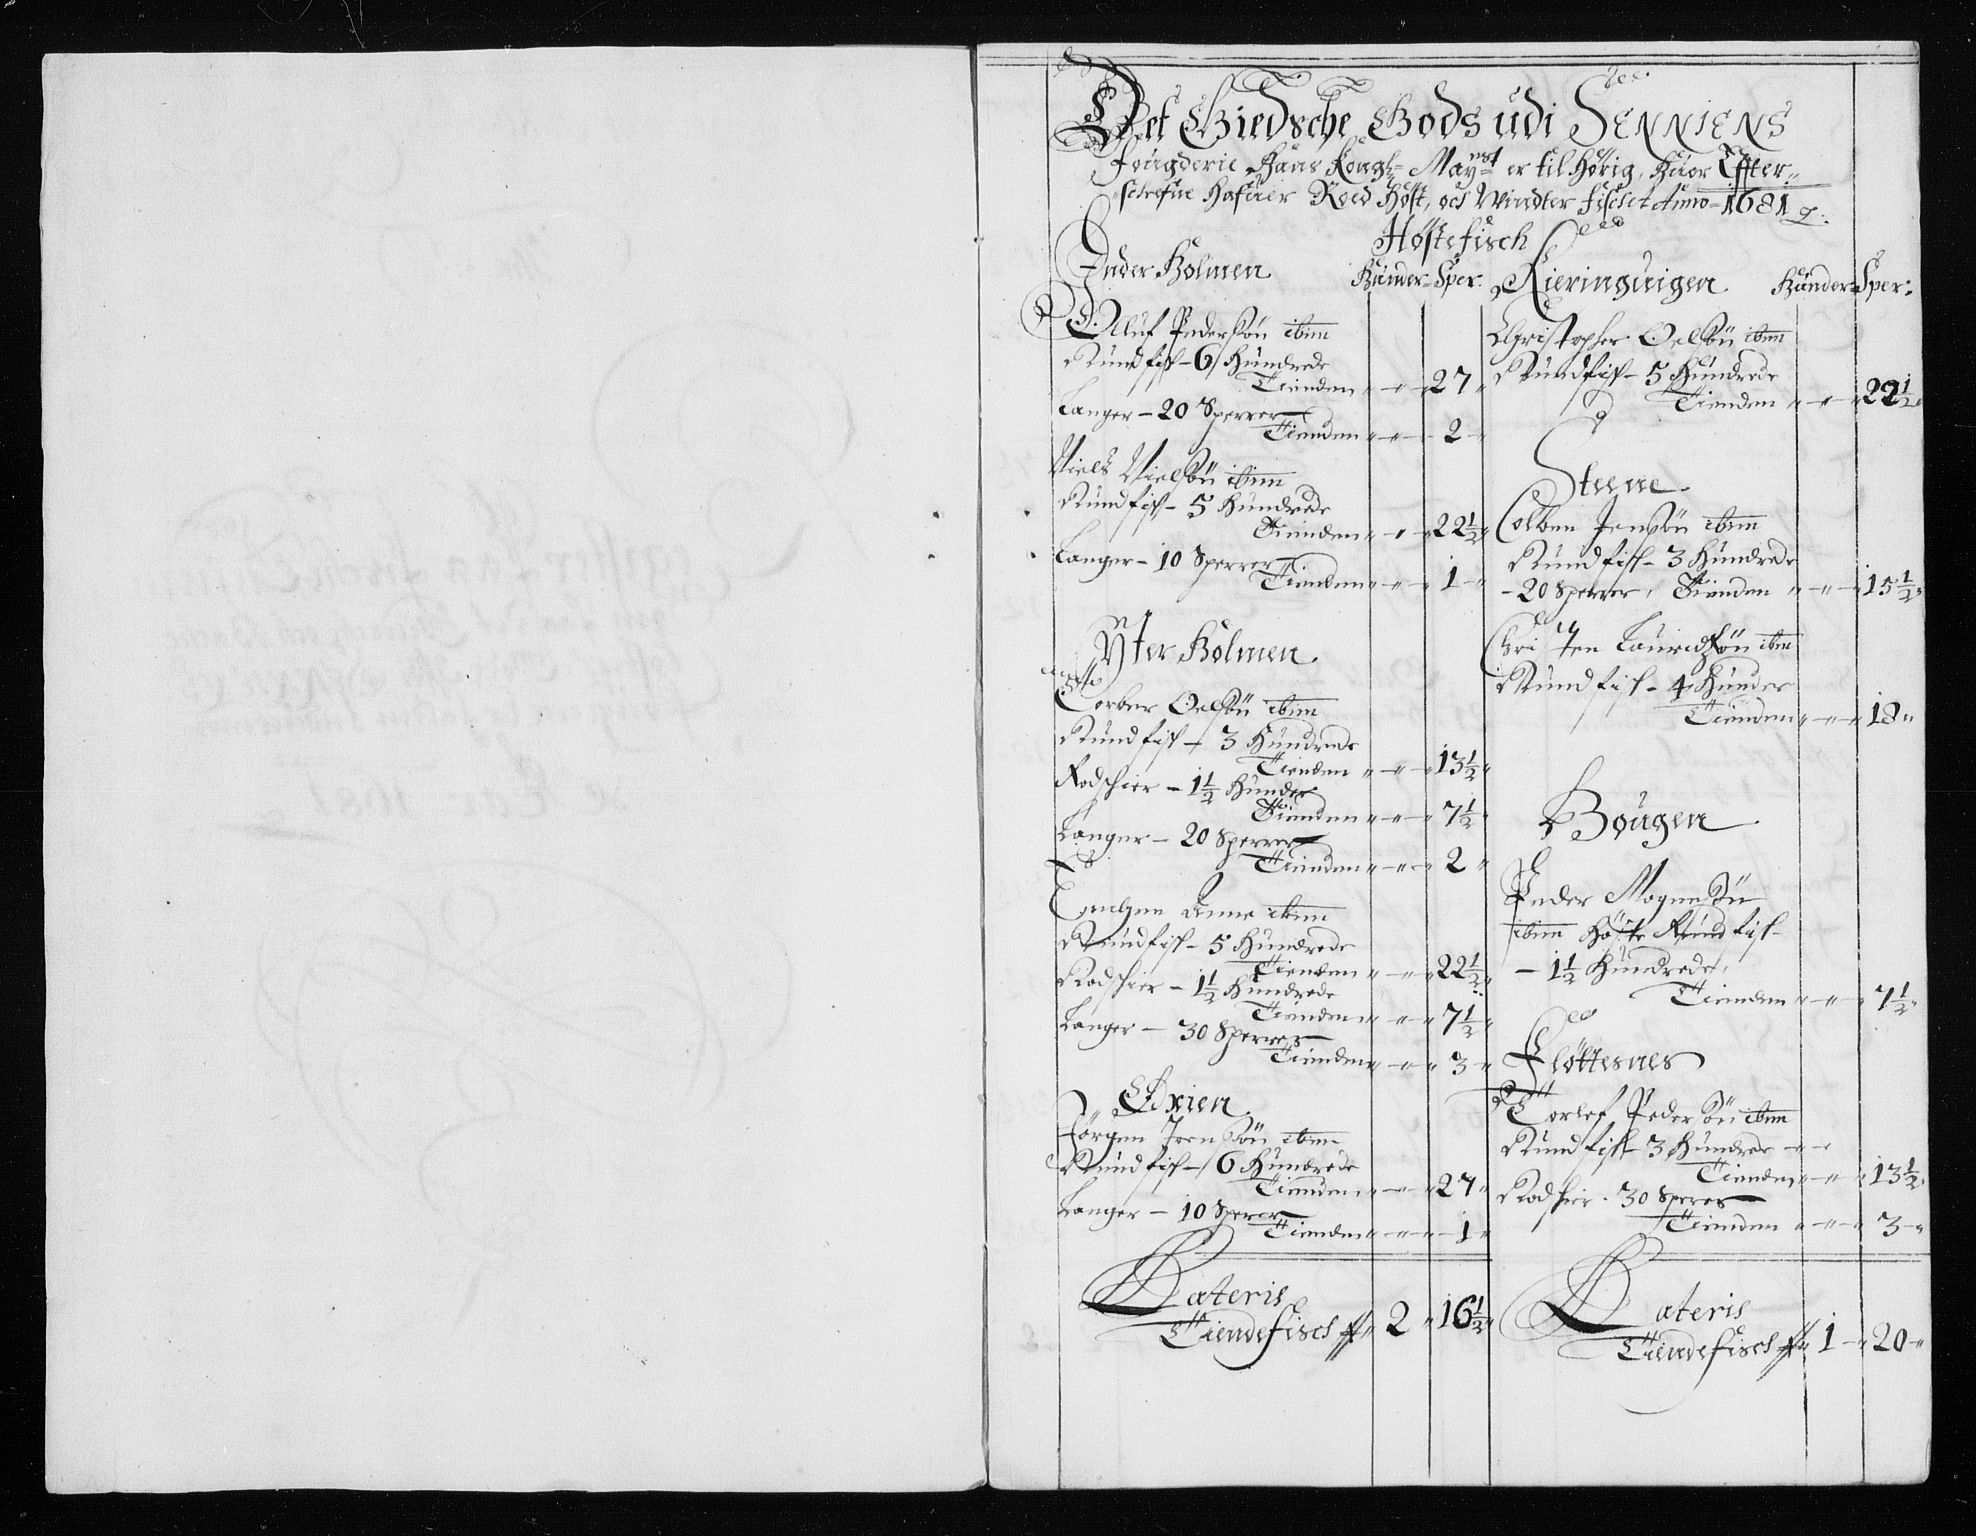 Det Giedsche Gods udi SENNIENS
Fougderie Hans Kongl: Mayst er til hørig, huor Effter-
schrefne hafuer Roed Høst, och Vindter fischet Anno 1681
Høstefisch
Inder Holmen
Hunder- Sper:
Oluf Pedersøn ibim
Rundfisk - 6 Hundrede
Tienden " - " - 27 "
Langer - 20 Sperrer
Tienden " - " - 2 "
Niels Nielsøn ibim
Rundfisk - 5 Hundrede
Tienden " - " - 22½ "
Langer - 10 Sperrer
Tienden " - " - 1 - "
Yter Holmen
Torber Oelsøn ibim
Rundfisk - 3 Hundrede
Tienden " - " - 13½ "
Rodschier - 1½ Hunder
Tienden " - " - 7½ "
Langer - 20 Sperrer
Tienden " - " - 2 "
Anne ibim
Rundfisk - 5 Hundrede
Tienden " - " - 22½ "
Rodschier - 1½ Hundrede
Tienden " - " - 7½ "
Langer - 30 Sperrer
Tienden " - " - 3 - "
Øxien
Jørgen Jensøn ibim
Rundfisk - 6 Hundrede
Tienden " - " - 27 "
Langer - 10 Sperer
Tienden " - " - 1 "
Lateris
Tiendefisch " 2 " 16½ "
Kieringuigen
Hunder- Sper:
Christopher Oelsøn ibim
Rundfisk - 5 Hundrede
Tienden " - " - 22½ "
Steene
Colben Jensøn ibim
Rundfisk - 3 Hundrede
- 20 Sperrer, Tienden " - " - 15½ "
Christen Lauridsøn ibim
Rundfisk - 4 Hunder
Tienden " - " - 18 "
Bougen
Peder Mogensøn
ibim Høste Rundfisk
- 1½ Hundrede,
Tienden " - " - 7½ "
Fløttesnes
Torlef Pedersøn ibim
Rundfisk - 3 Hundrede
Tienden " - " - 13½ "
Rodschier - 30 Sperer
Tienden " - " - 3 - "
Lateris
Tiendefisch " 1 - " 20 - "